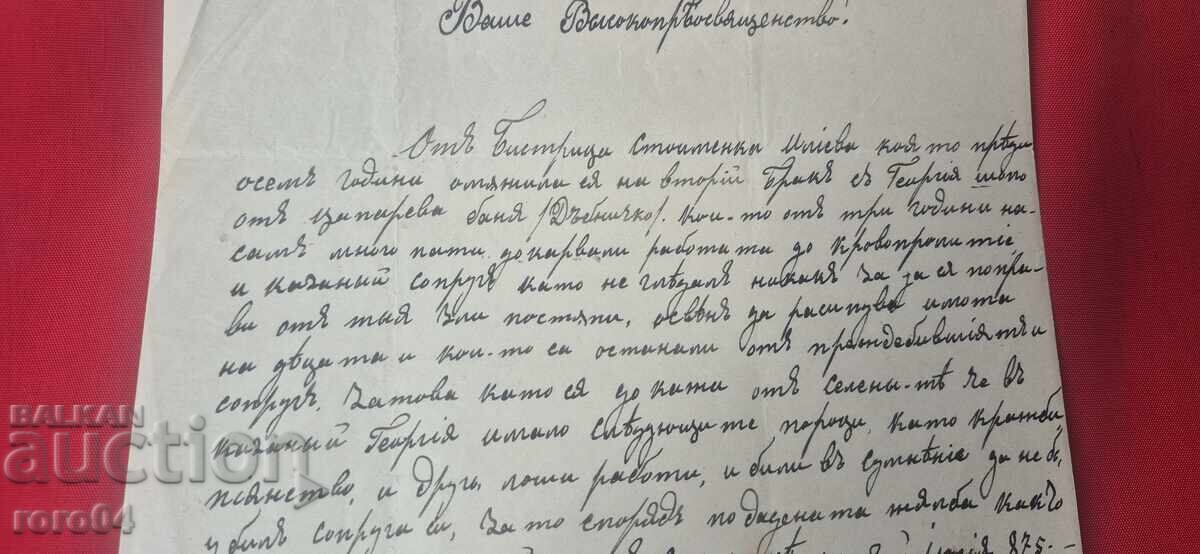 Ваше Высокопрѣосвященство!
Отъ Бистрица Стоименка Илиева която прѣди
осемъ години омѫжила ся на вторїй бракъ съ Георгія
отъ Цапарева баня /Дъбничко/. кои-то отъ три години на-
самъ много пѫти докарвали работата до кровопролитіе
и казаный сопругъ като не глѣдалъ никакъ за да ся попра-
ви отъ тыя зли постѫпи, освѣнъ да расипува имота
на дѣцата и кои-то са останали отъ
сопругъ, Затова като ся докажи отъ селены-тѣ че въ
казаный Георгія имало слѣдующите пороци, като кражби,
піянство, и други лоши работи, и били въ сумнѣніе да не б,
убилъ сопруга си, За то спорядъ подадената жялба какъ
875.-
BALKAN
auction
roro04